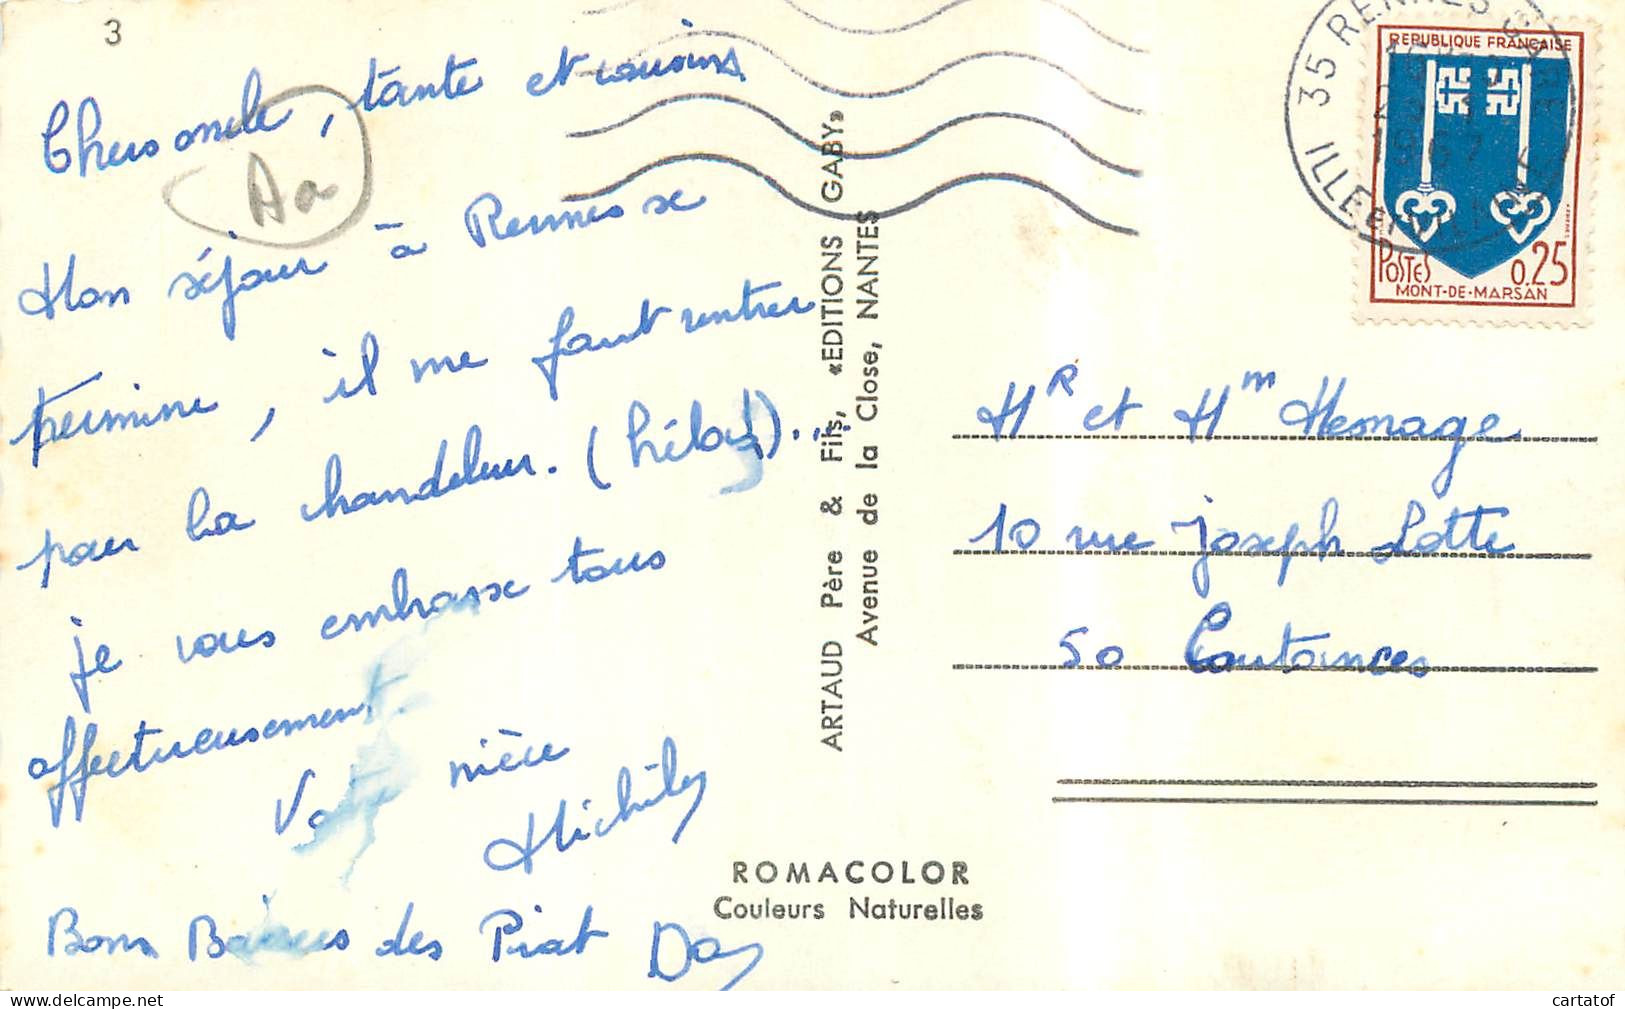 3
Chers oncle, tante et cousins
Aa
Mon séjour à Rennes se
termine, il me faut rentrer
pour la chandeleur. (hélas!)...
je vous embrasse tous
affectueusement.
Votre nièce
Bons Baisers des Piat
ARTAUD Père & Fils, «EDITIONS GABY»
Avenue de la Close, NANTES
ROMACOLOR
Couleurs Naturelles
35 RENNES GARE
1967
ILLE ET VILAINE
REPUBLIQUE FRANCAISE
POSTES 0.25
MONT-DE-MARSAN
Mr et Mm Mesnage
10 rue Joseph Lotte
50 Coutances
cartatof